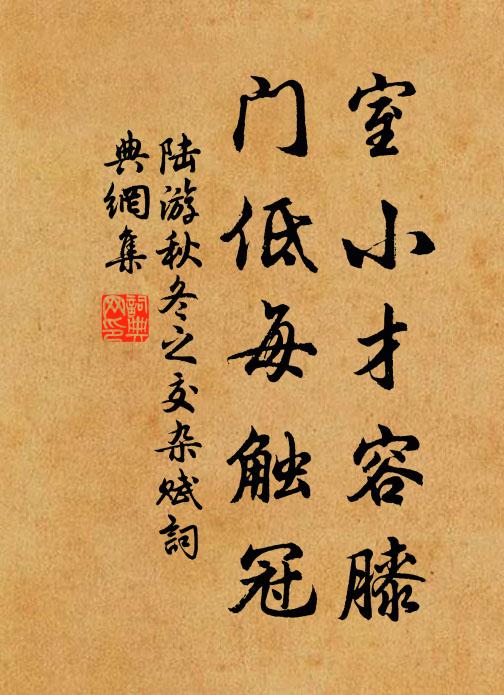 室小才容膝
门低每触冠
陆游秋冬之交杂赋词
典網集
詞典
网印